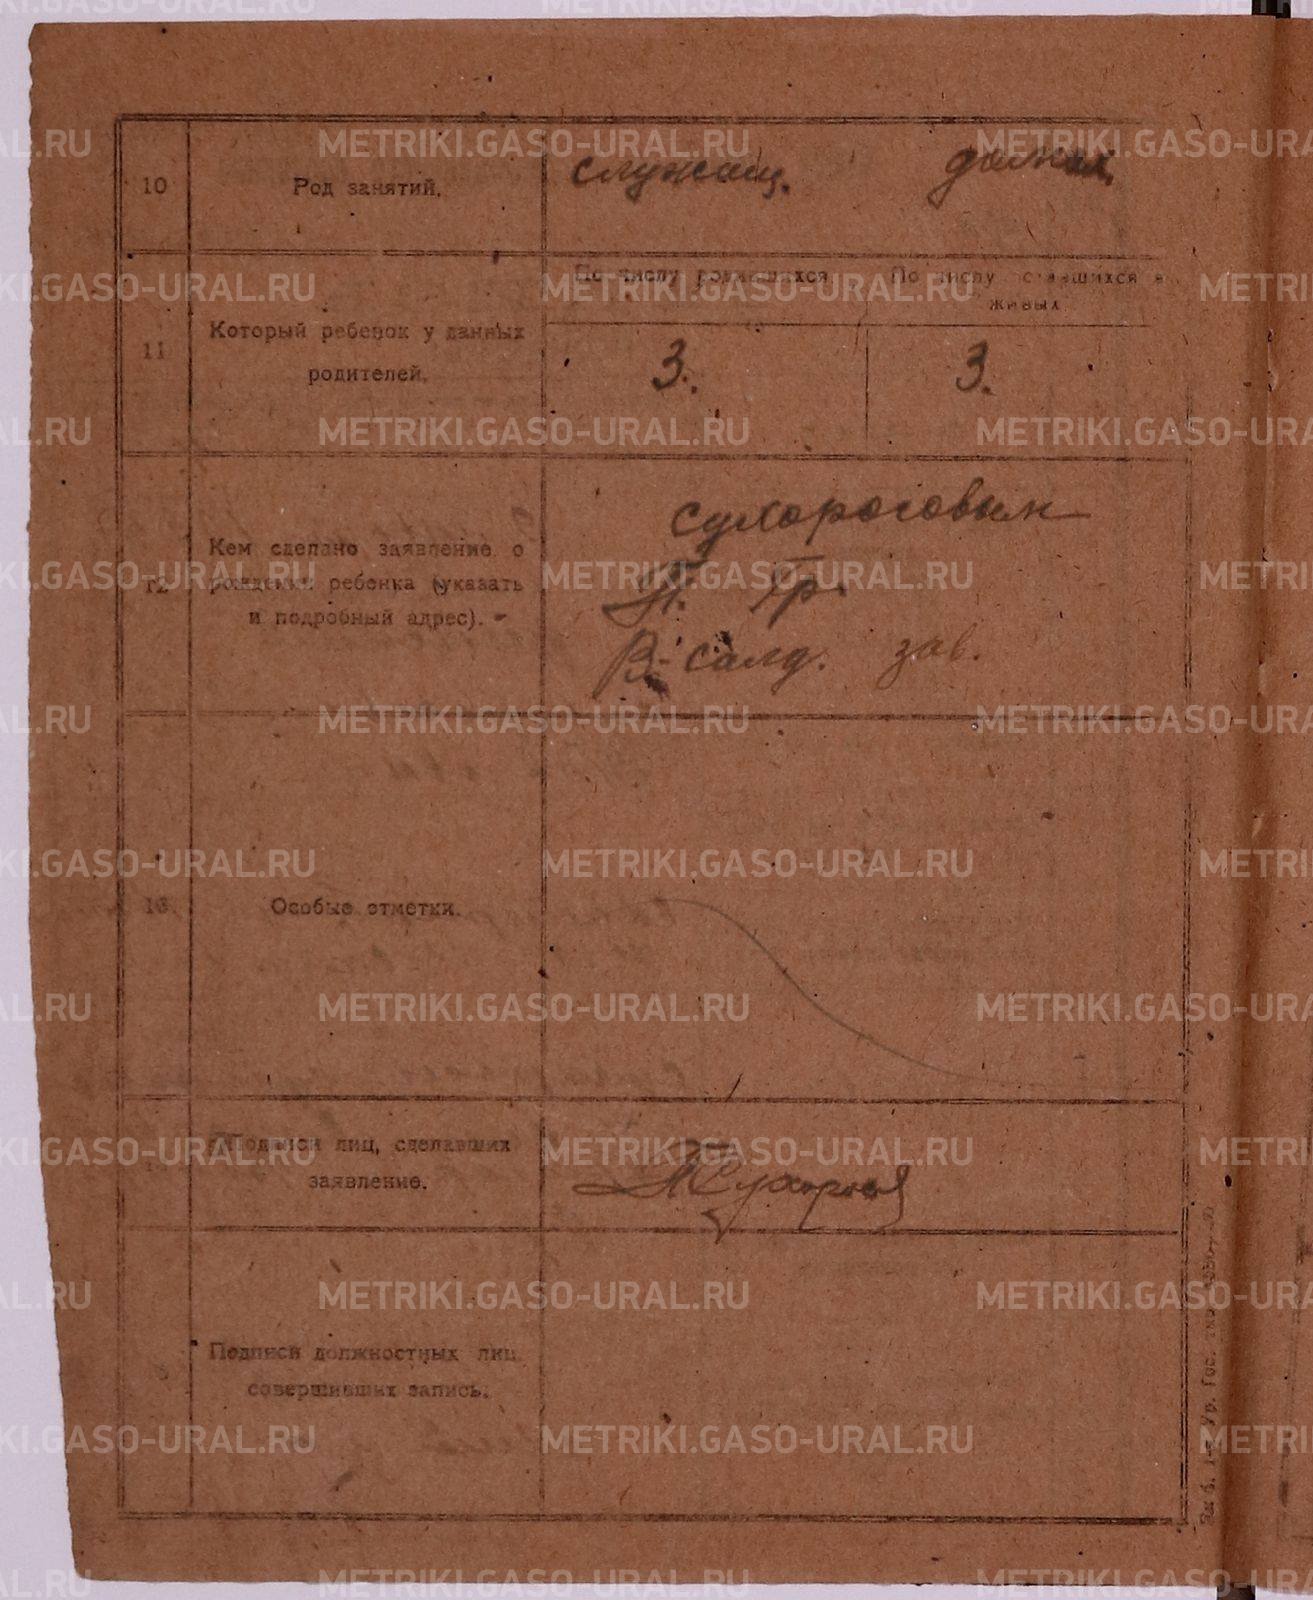 10
Род занятий.
служащ.
11
Который ребенок у данных
родителей.
По числу родившихся
По числу оставшихся в
живых
3.
3.
12
Кем сделано заявление о
рождении ребенка (указать
и подробный адрес).
Сухороговым
П. Гр.
В-Салд. зав.
13.
Особые отметки.
Подписи лиц, сделавших
заявление.
Подписи должностных лиц,
совершивших запись.
METRIKI.GASO-URAL.RU